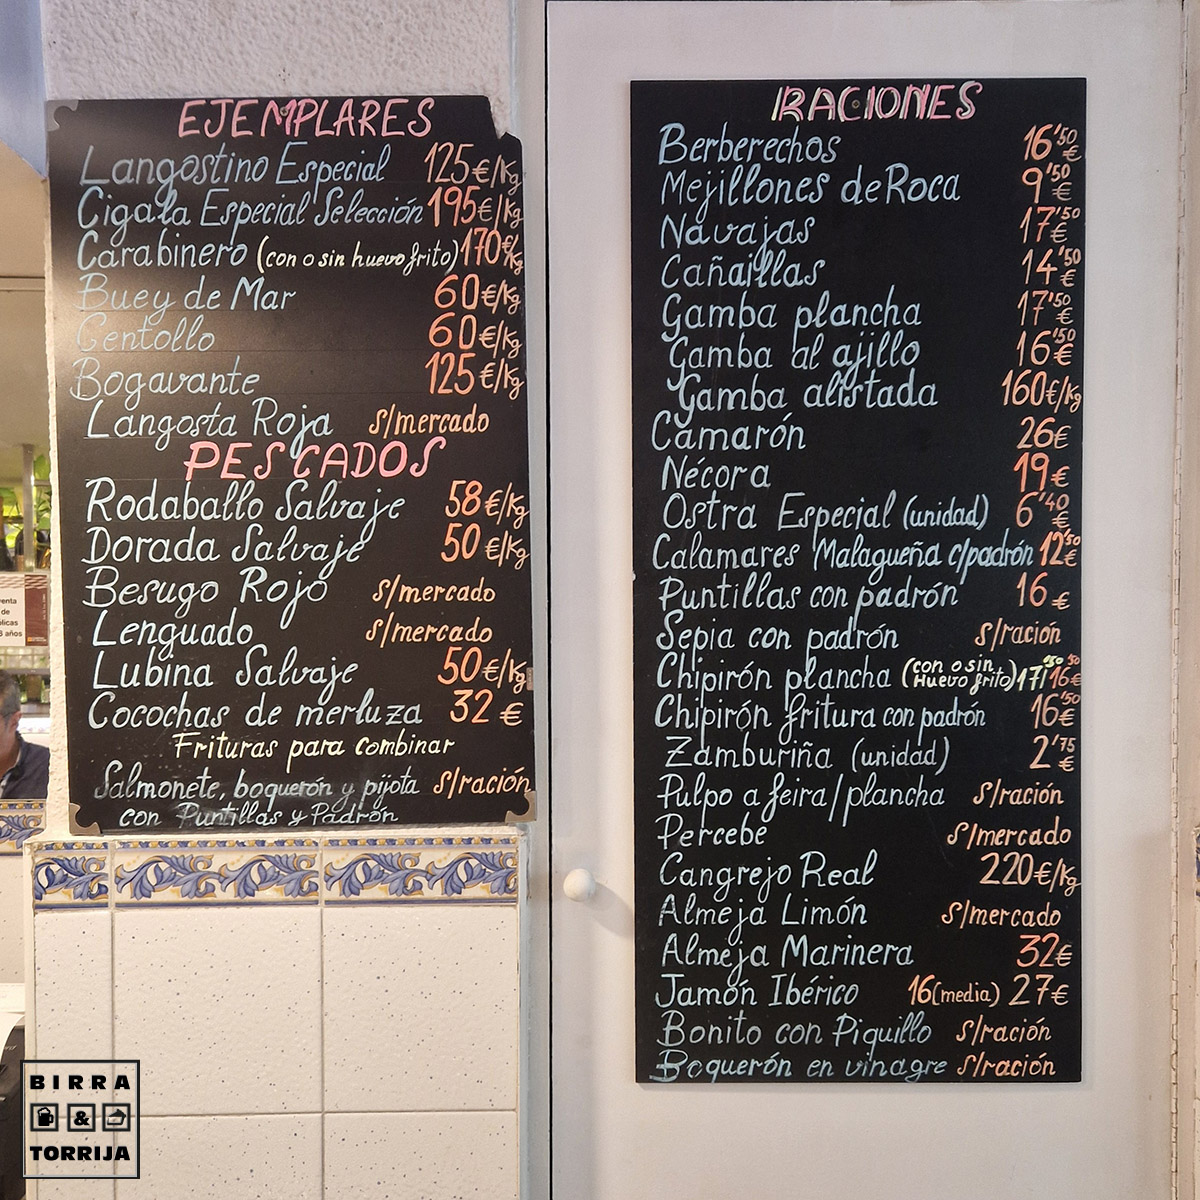 EJEMPLARES
Langostino Especial 125€/Kg
Cigala Especial Selección 195€/Kg
Carabinero (con o sin huevo frito) 170€/Kg
Buey de Mar 60€/Kg
Centollo 60€/Kg
Bogavante 125€/Kg
Langosta Roja s/mercado
PESCADOS
Rodaballo Salvaje 58€/Kg
Dorada Salvaje 50€/Kg
Besugo Rojo s/mercado
Lenguado s/mercado
Lubina Salvaje 50€/Kg
Cocochas de merluza 32€
Frituras para combinar
Salmonete, boquerón y pijota s/ración
con Puntillas y Padrón
RACIONES
Berberechos 16'50€
Mejillones de Roca 9'50€
Navajas 17'50€
Cañaillas 14'50€
Gamba plancha 17'50€
Gamba al ajillo 16'50€
Gamba alistada 160€/Kg
Camarón 26€
Nécora 19€
Ostra Especial (unidad) 6'40€
Calamares Malagueña c/padrón 12'50€
Puntillas con padrón 16€
Sepia con padrón s/ración
Chipirón plancha (con o sin Huevo frito) 17'50/16'50€
Chipirón fritura con padrón 16'50€
Zamburiña (unidad) 2'75€
Pulpo a feira/plancha s/ración
Percebe s/mercado
Cangrejo Real 220€/Kg
Almeja Limón s/mercado
Almeja Marinera 32€
Jamón Ibérico 16(media) 27€
Bonito con Piquillo s/ración
Boquerón en vinagre s/ración
venta
de
años
BIRRA
&
TORRIJA